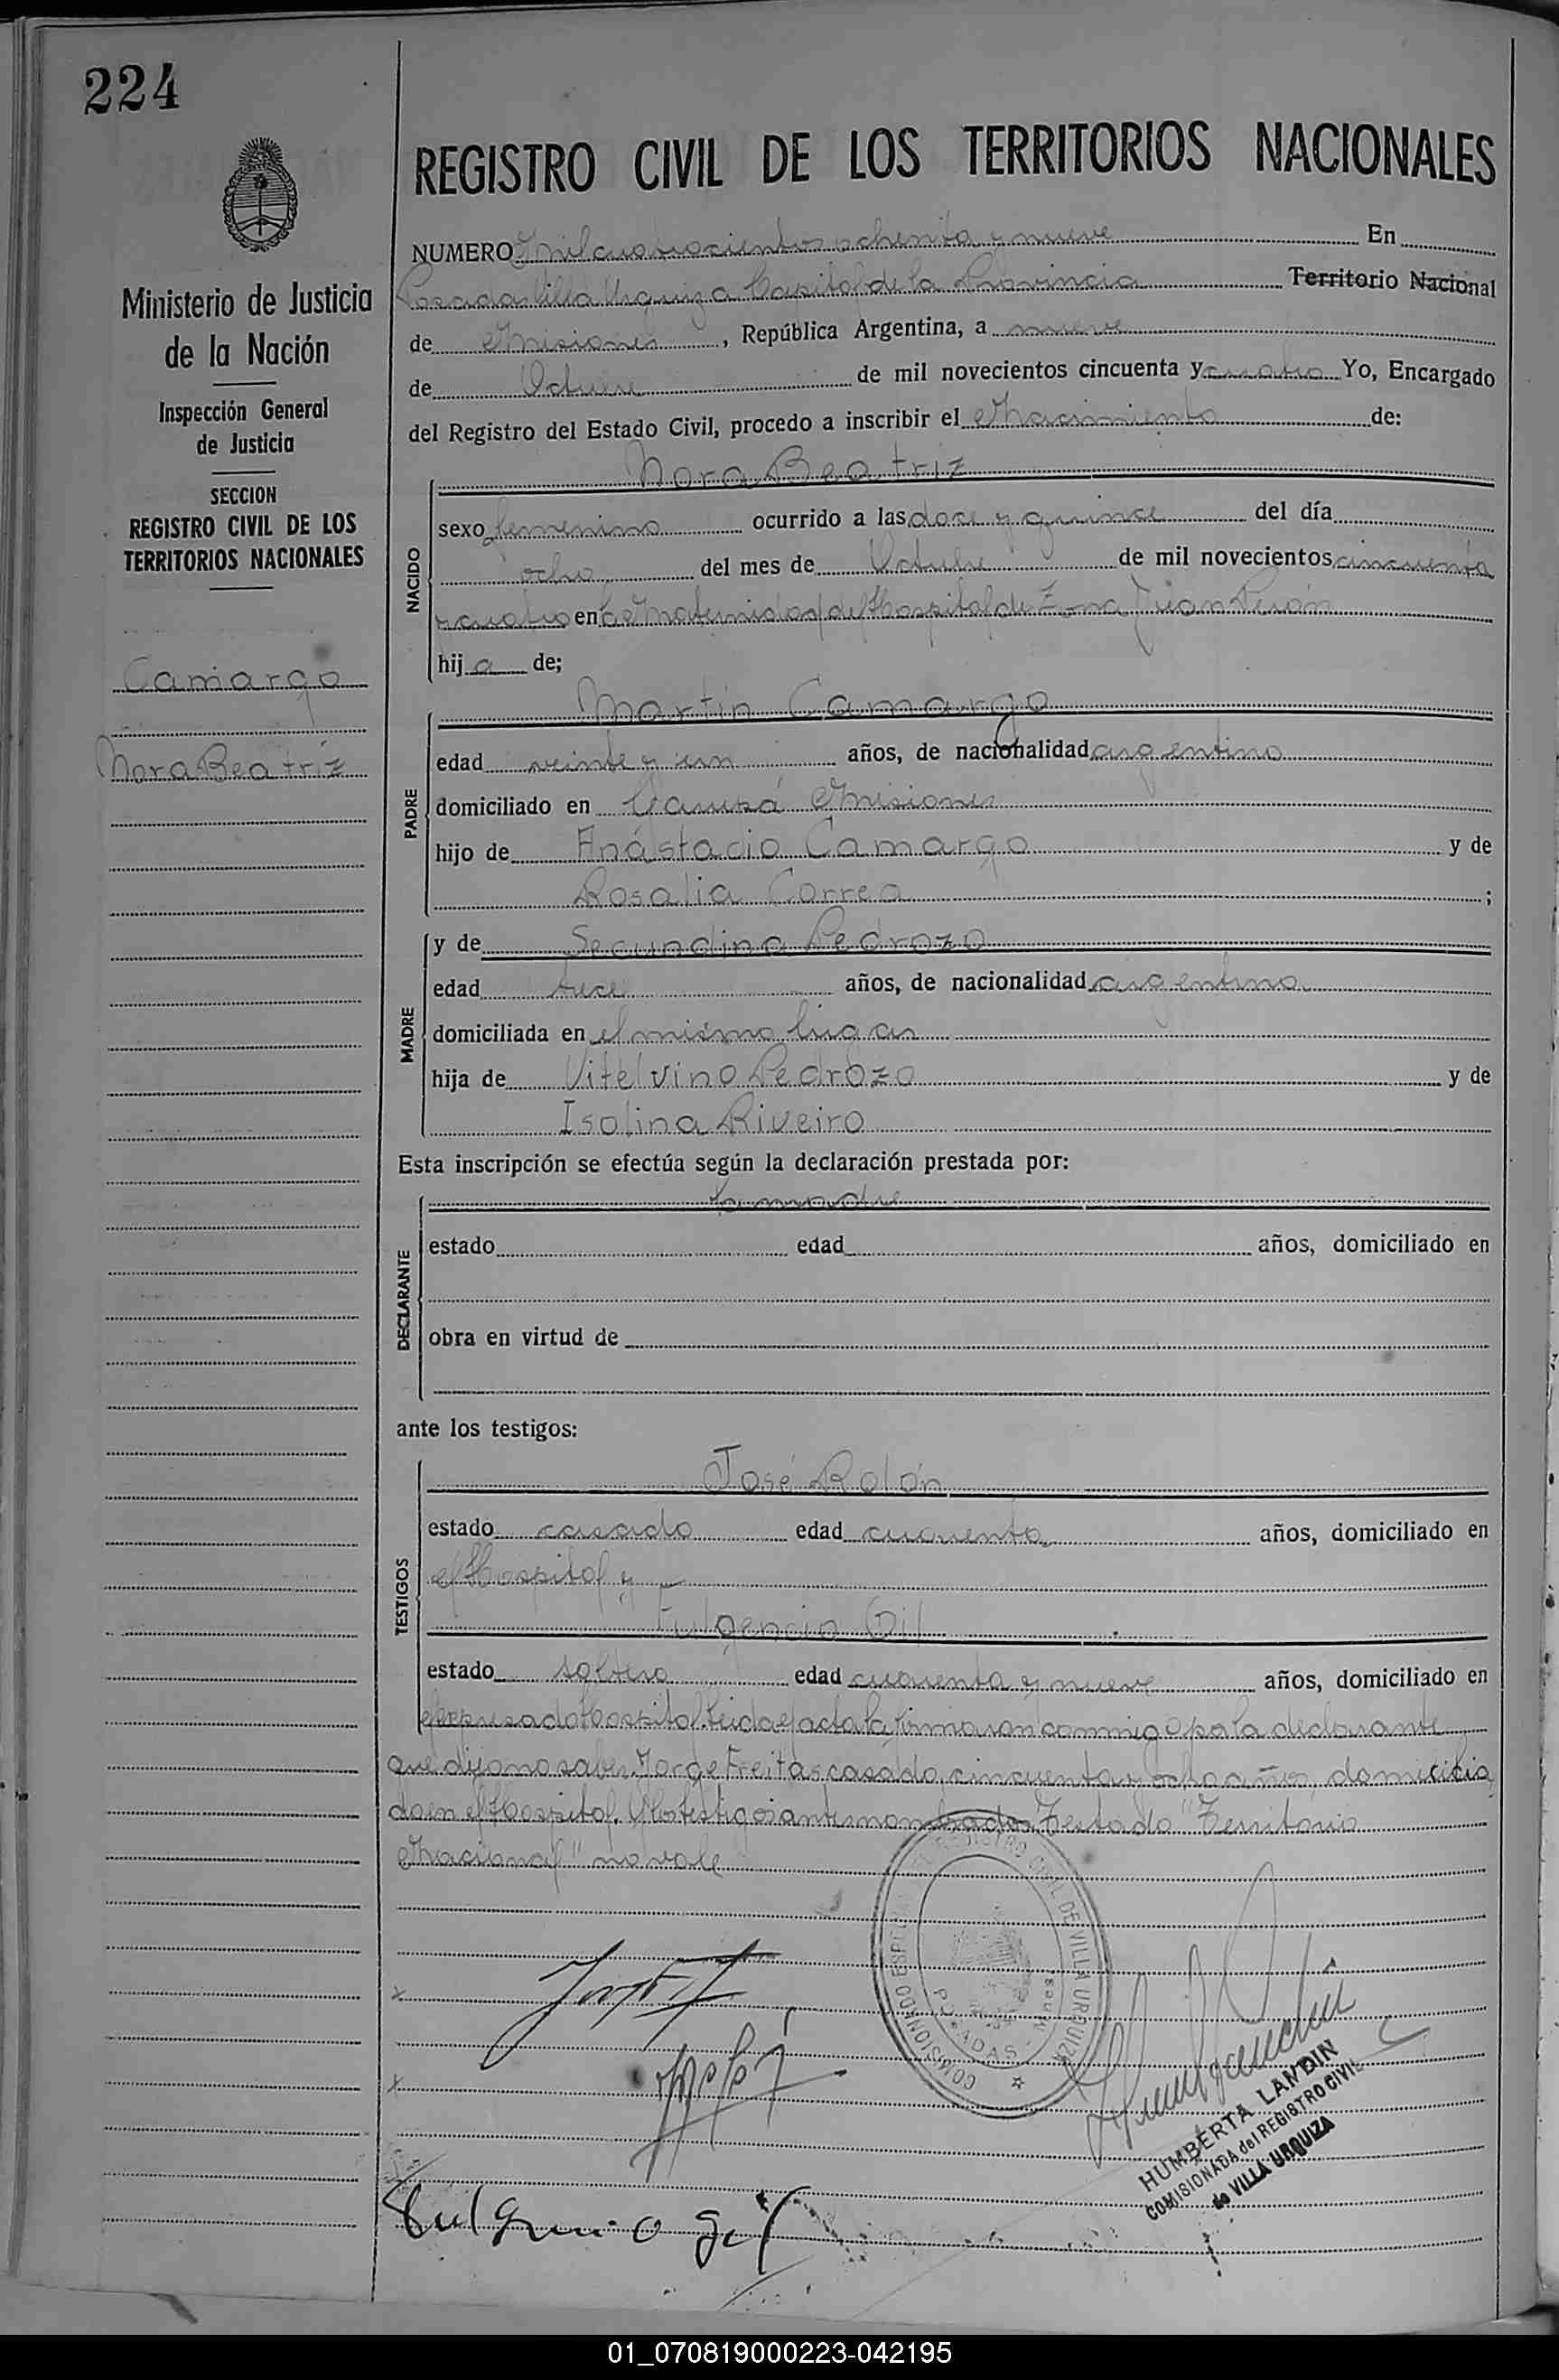 224
Ministerio de Justicia
de la Nación
Inspección General
de Justicia
SECCION
REGISTRO CIVIL DE LOS
TERRITORIOS NACIONALES
Camargo
Nora Beatriz
REGISTRO CIVIL DE LOS TERRITORIOS NACIONALES
NUMERO mil cuatrocientos ochenta y nueve En
Posadas Villa Urquiza Capital de la Provincia Territorio Nacional
de Misiones, República Argentina, a nueve
de Octubre de mil novecientos cincuenta y cuatro Yo, Encargado
del Registro del Estado Civil, procedo a inscribir el Nacimiento de:
NACIDO
Nora Beatriz
sexo femenino ocurrido a las doce y quince del día
ocho del mes de Octubre de mil novecientos cincuenta
y cuatro en La Maternidad del Hospital de Zona Juan Perón
hija de;
PADRE
Martín Camargo
edad veinte y un años, de nacionalidad argentino
domiciliado en Garupá Misiones
hijo de Anástacio Camargo y de
Rosalia Correa ;
MADRE
y de Secundina Pedrozo
edad trece años, de nacionalidad argentina
domiciliada en el mismo lugar
hija de Vitelvino Pedrozo y de
Isolina Riveiro
Esta inscripción se efectúa según la declaración prestada por:
DECLARANTE
la madre
estado edad años, domiciliado en
obra en virtud de
ante los testigos:
TESTIGOS
José Rolón
estado casado edad cuarenta años, domiciliado en
el Hospital y
Fulgencio Gil
estado soltero edad cuarenta y nueve años, domiciliado en
el expresado Hospital. Leida el acta la firmaron conmigo por la declarante
que dijo no saber Jorge Freitas casado, cincuenta y ocho años, domicilia
do en el Hospital. Y los testigos antes nombrados. Testado "Territorio
Nacional" no vale
COMISIONADO REGISTRO CIVIL DE VILLA URQUIZA
POSADAS - Mnes.
HUMBERTA LANDIN
COMISIONADA del REGISTRO CIVIL
de VILLA URQUIZA
Fulgencio gil
01_070819000223-042195